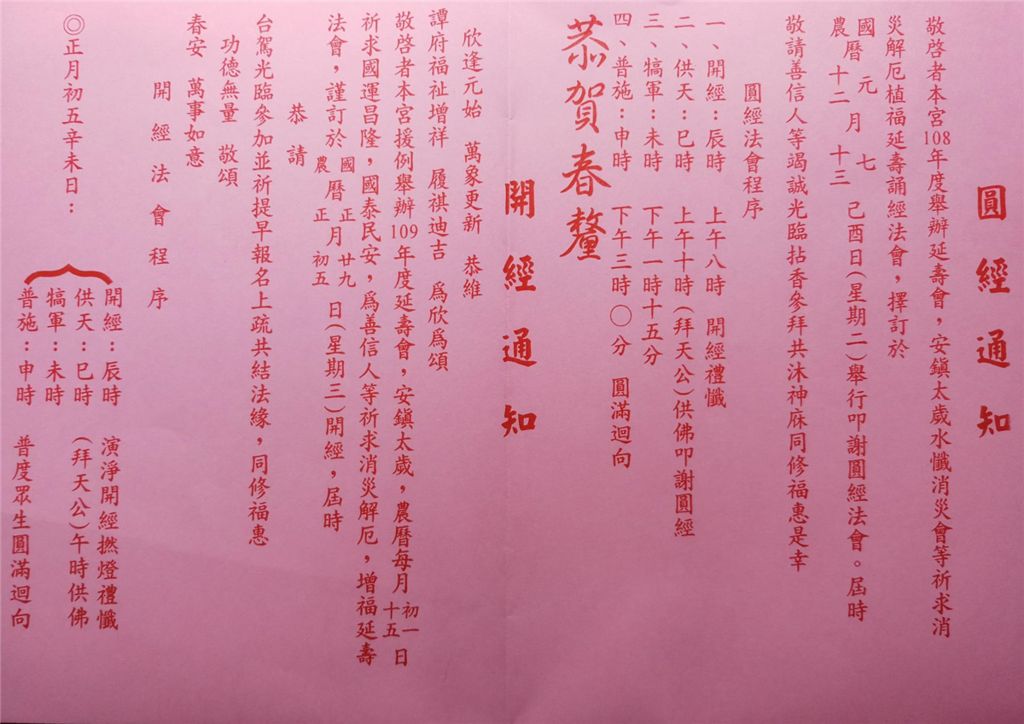 圓經通知
敬啓者本宮108年度舉辦延壽會，安鎮太歲水懺消災會等祈求消
災解厄植福延壽誦經法會，擇訂於
國曆元七
農曆十二月十三己酉日(星期二)舉行叩謝圓經法會。屆時
敬請善信人等竭誠光臨拈香參拜共沐神庥同修福惠是幸
圓經法會程序
一、開經：辰時 上午八時 開經禮懺
二、供天：巳時 上午十時(拜天公)供佛叩謝圓經
三、犒軍：未時 下午一時十五分
四、普施：申時 下午三時〇分 圓滿迴向
恭賀春釐
開經通知
欣逢元始 萬象更新 恭維
譚府福祉增祥 履祺迪吉 爲欣爲頌
敬啓者本宮援例舉辦109年度延壽會，安鎮太歲，農曆每月初一十五日
祈求國運昌隆，國泰民安，爲善信人等祈求消災解厄，增福延壽
法會，謹訂於國農曆正月廿九正月初五日(星期三)開經，屆時
恭請
台駕光臨參加並祈提早報名上疏共結法緣，同修福惠
功德無量 敬頌
春安 萬事如意
開經法會程序
◎正月初五辛未日：
開經：辰時 演淨開經撚燈禮懺
供天：巳時 (拜天公)午時供佛
犒軍：未時
普施：申時 普度眾生圓滿迴向